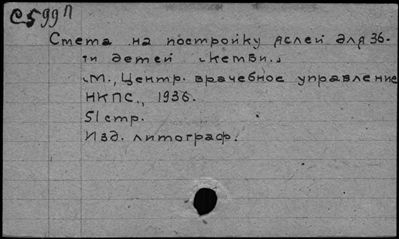 С599П
Смета на постройку яслей для 36-
ти детей
М., Центр. врачебное управление
НКПС., 1936.
51 стр.
Изд. литограф.